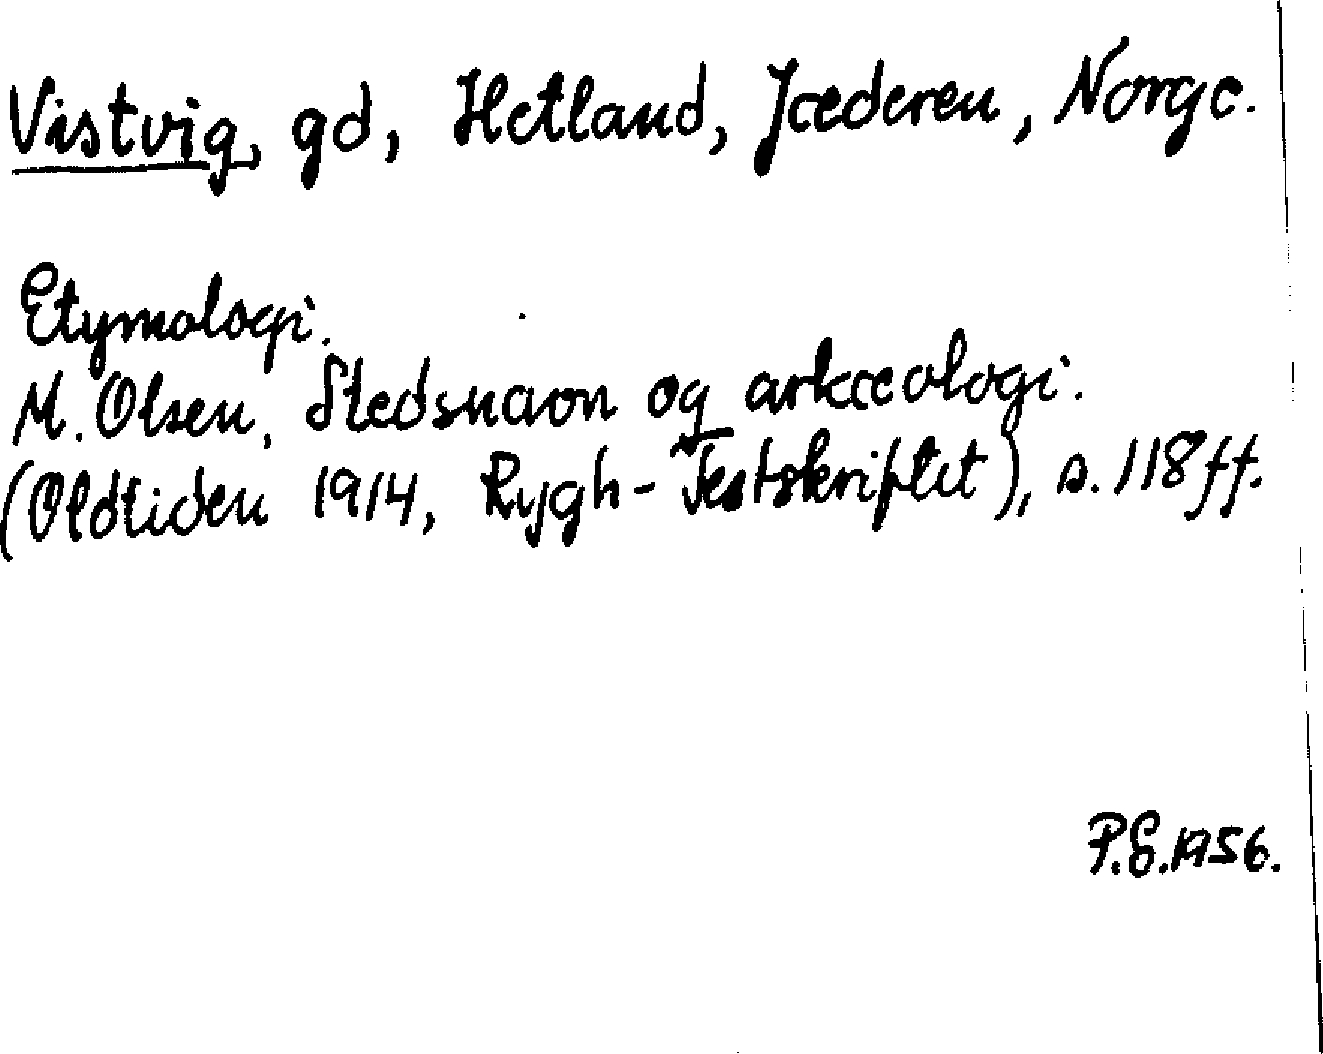 Vistvig, gd, Hetland, Jæderen, Norge.
Etymologi.
M. Olsen, Stedsnavn og arkæologi.
(Oldtiden 1914, Rygh-Festskriftet), s. 118 ff.
P.E. 1956.